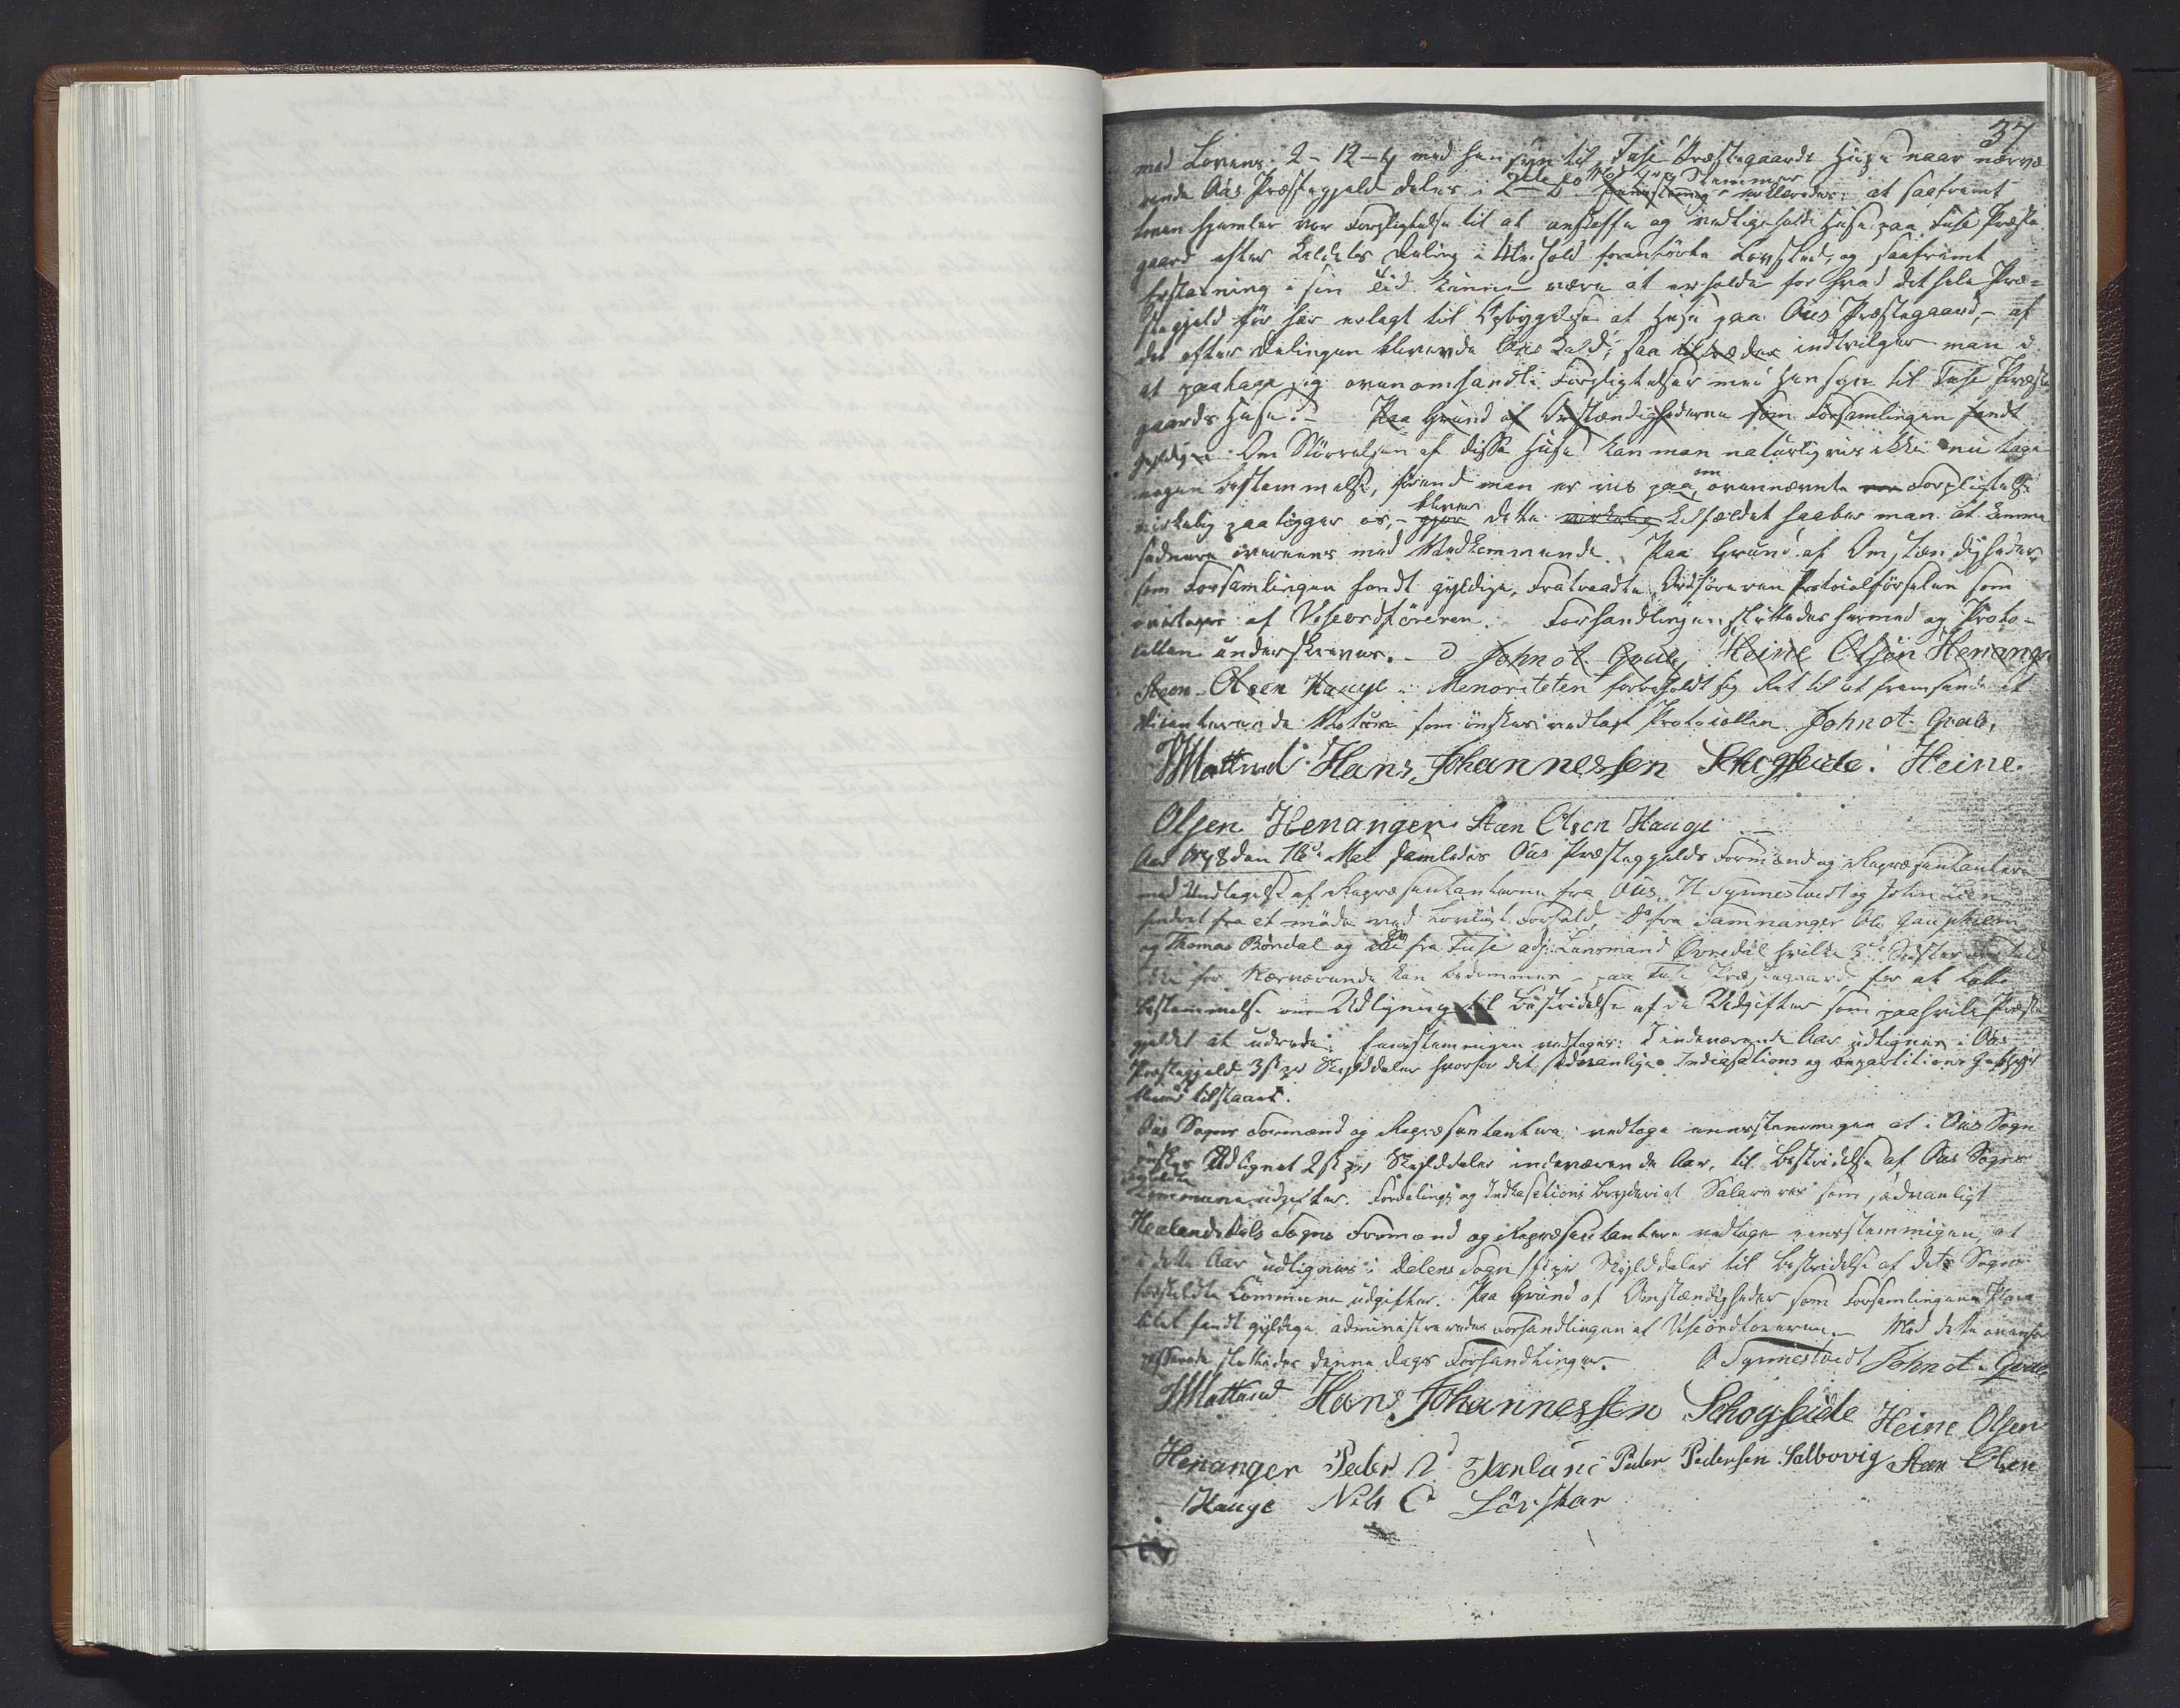 37
med Lovens 2-12-4 med hensyn til Fuse Præstegaards Huse naar nærvæ
rende Ous Præstegjeld deles i 2de Kald med Stemmer erklæredes: at saafremt
Loven hjemler vor Forpligtelse til at anskaffe og vedligeholde Huse paa Fuse Præste
gaard efter Kaldets Deling i Henhold foranførte Lovsted, og saafremt
Erstatning i sin Tid kunne være at erholde for hvad det hele Præ-
stegjeld før har erlagt til Opbyggelse at Huse paa Ous Præstegaard, - af
det efter Delingen blivende Ous Kald, saa tiltræder indvilger man i
at paatage sig ovenomhandlede Forpligtelser med Hensyn til Fuse Præste
gaards Huse. - Paa Grund af Omstændighederne som Forsamlingen fandt
gyldige Om Størrelsen af disse Huse kan man naturligvis ikke nu tage
nogen bestemmelse, førend man er vis paa, om ovennævnte Forpligtelse
virkelig paaligger os, - bliver gjør dette virkelig Tilfældet haaber man at komme
sednere overeens med Vedkommende. Paa Grund af Omstændigheder
som Forsamlingen fandt gyldige, fratraadte Ordføreren Protocolførselen som
overtoges af Viseordføreren. Forhandlingen sluttedes hermed og Proto-
collen underskreves. - John ot. Grue, Heine Olsen Henanger
Aaen Olsen Hauge - Menoriteten forbeholdt sig Ret til at fremsende et
Votum som ønskes vedlagt Protocollen John ot. Grue,
Hans Johannessen Schogseide. Heine
Olsen Henanger Aaen Olsen Hauge
Aar 1848 den 16de Mai samledes Ous Præstegjelds Formænd og Repræsentantere
med Undtagelse af Repræsentanterne fra Ous, N Synnestvedt og John Lien
hindret fra at møde ved Lovligt Forfald, do fra Samnanger Ole Gaupholm
og Thomas Røndal og fra Fuse adj: Lensmand Øvredal hvilke 3de Sidstes Forfald
ikke for Nærværende kan bedømmes - paa Fuse Præstegaard, for at tage
bestemmelse om Udligning til Bestridelse af de Udgifter som paahvile Præste
gjeldet at udrede: Eenstemmigen vedtoges: I indeværende Aar udlignes i Ous
Præstegjeld 3 s pr Skylddaler hvorfor det sædvanlige Indcasations og repartitions Gebyhr
blev tilstaaet.
Ous Sogns Formænd og Repræsentantere vedtoge eenstemmigen at i Ous Sogn
ønskes Udlignet 2 s pr Skylddaler indeværende Aar, til Bestridelse af Ous Sogns
Commune udgifter. Fordelings og Indkasations bryderiet Salareres som sædvanligt
Haalandsdals Sogns Formænd og Repræsentantere vedtoge eenstemmigen, at
i dette Aar udlignes i Dalens Sogn pr Skylddaler til Bestridelse af dets Sogns
særskildte Commune udgifter. Paa Grund af Omstændigheder som Forsamlingens
fandt gyldige administreredes Forhandlingen af Viseordføreren. - Med dette
sluttedes denne dags Forhandlinger. - O Synnestvedt John ot. Grue
Hans Johannessen Schogseide Heine Olsen
Henanger Peder Peder Pedersen Salbovig Aaen Olsen
Hauge Nils O Løvskar